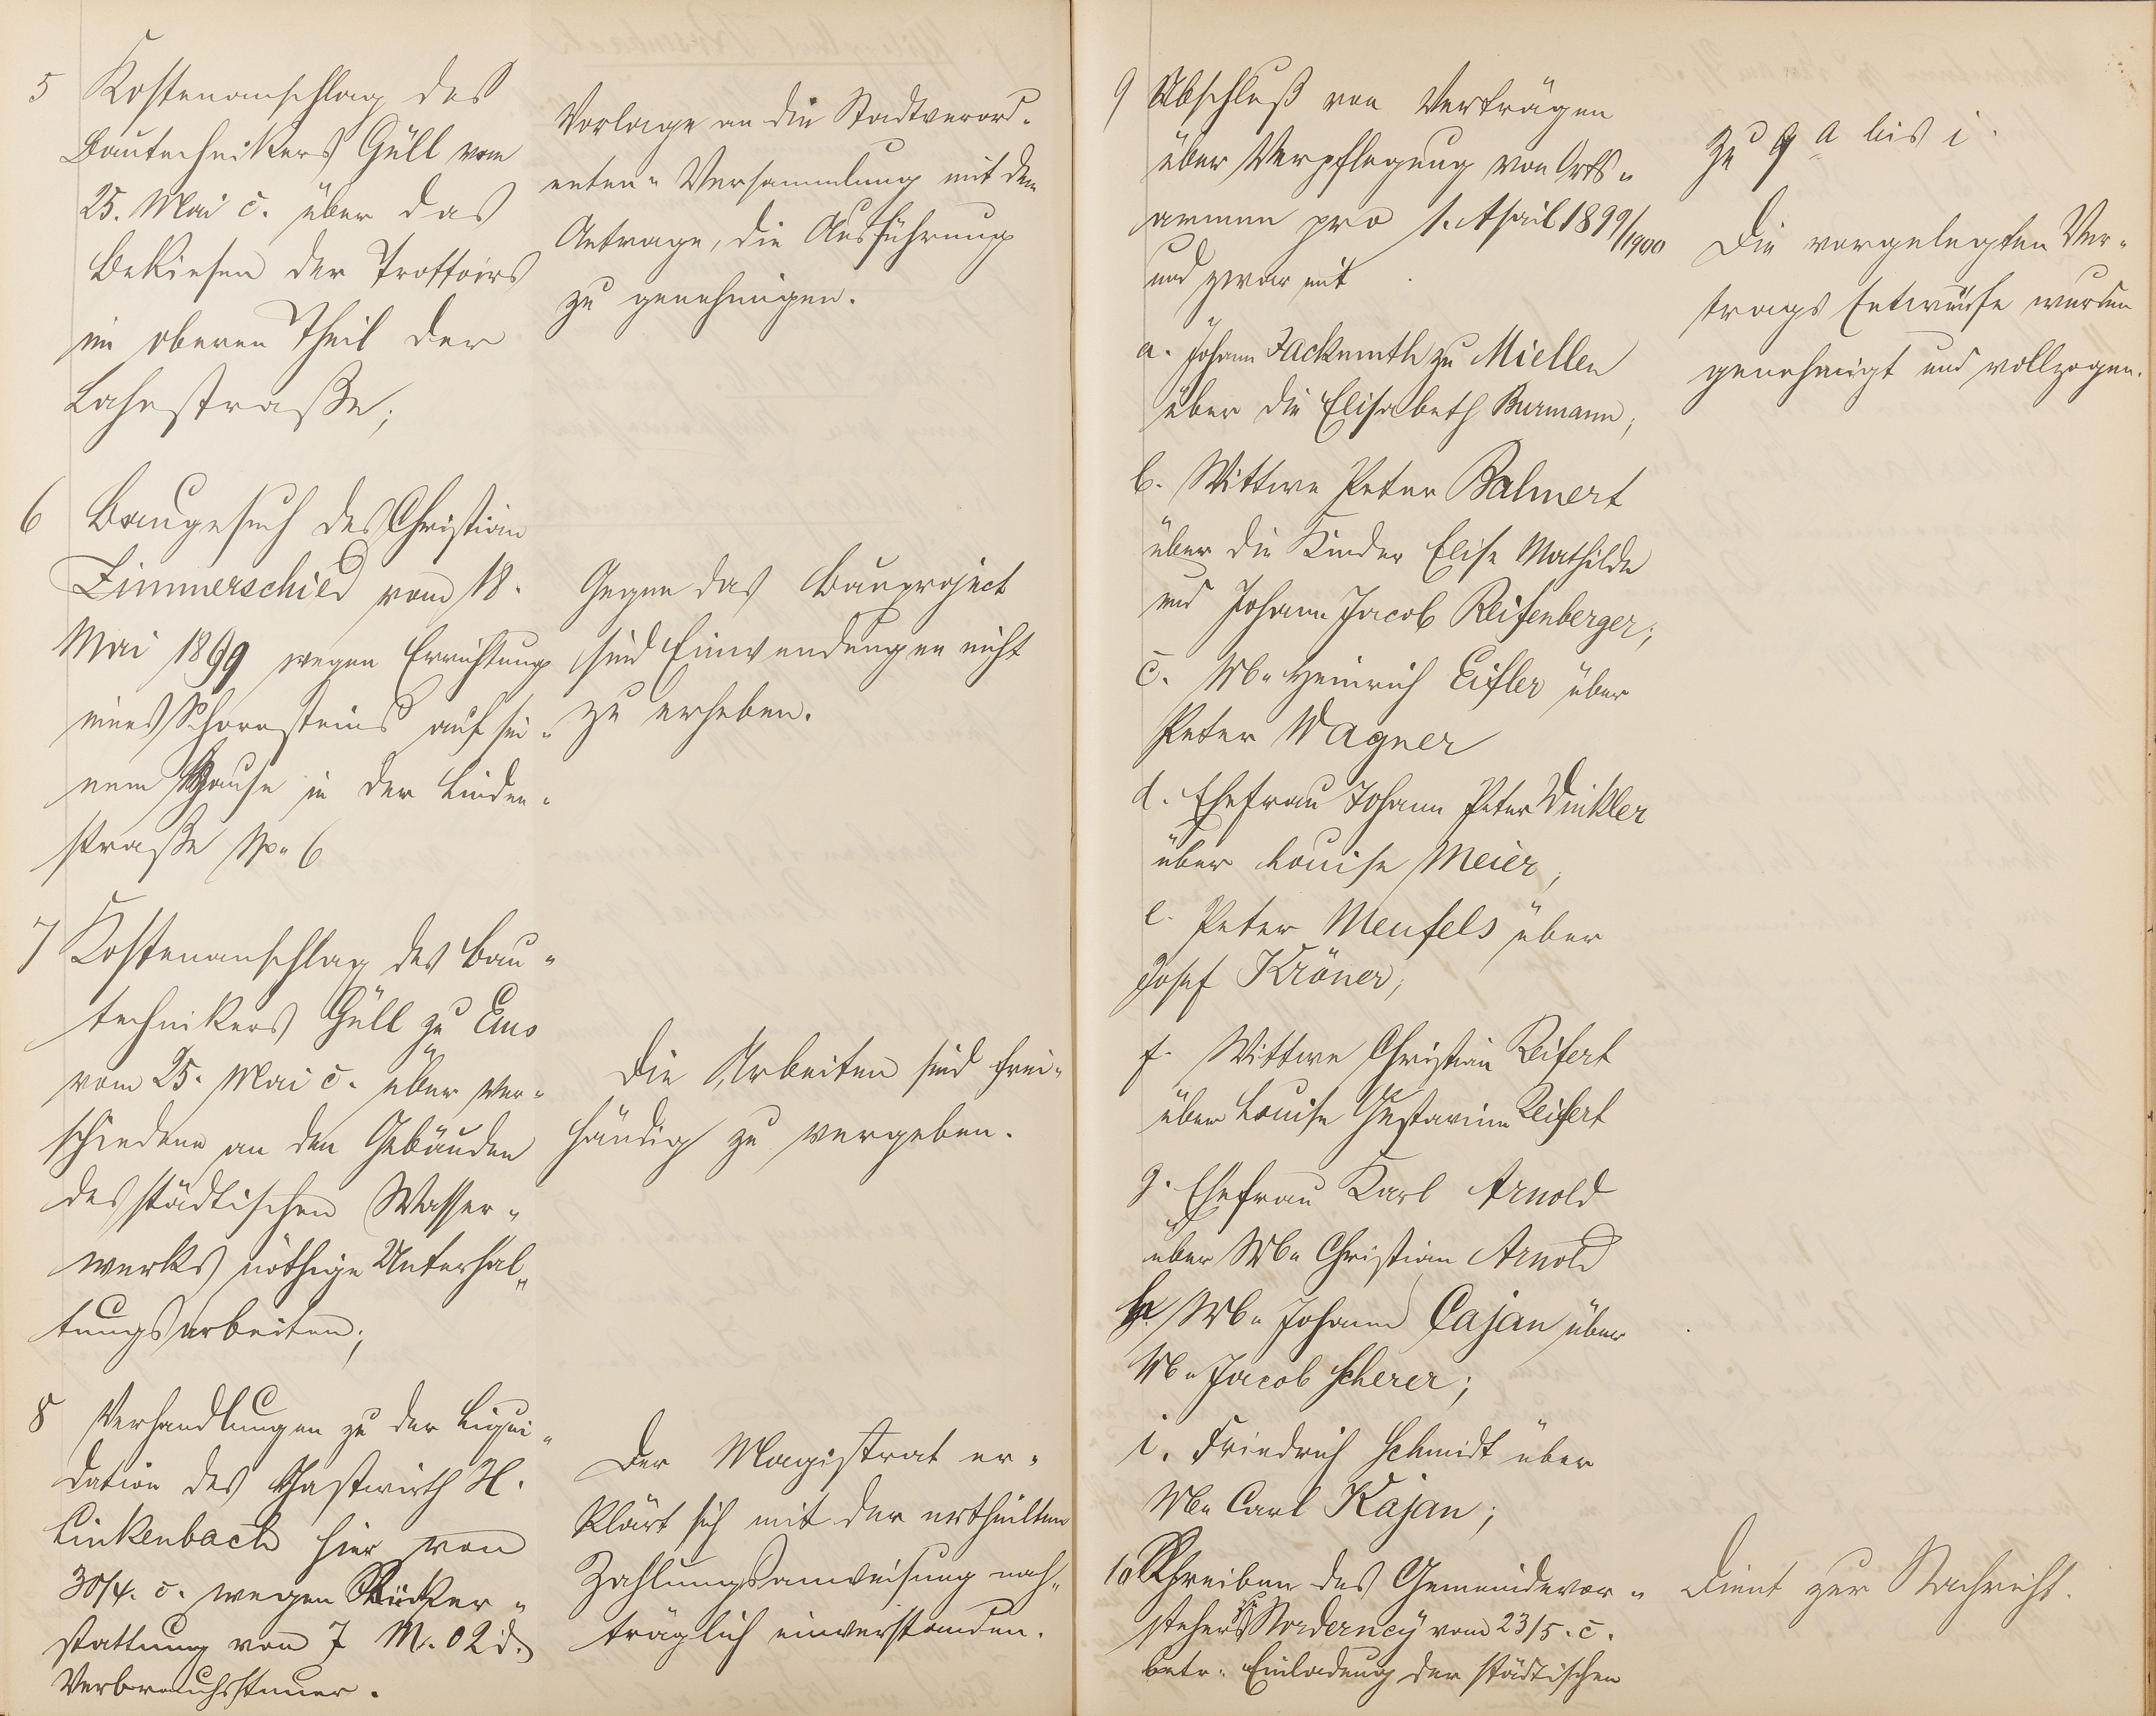 5 Kostenanschlag des
Bautechnikers Güll vom
25. Mai c. über das
Bekiesen der Trottoirs
im oberen Theil der
Lahnstraße;
Vorlage an die Stadtverord-
neten-Versammlung mit dem
Antrage, die Ausführung
zu genehmigen.
6 Baugesuch des Christian
Zimmerschied vom 18.
Mai 1899 wegen Errichtung
eines Schornsteins auf sei-
nem Hause in der Linden-
straße No. 6
Gegen das Bauproject
sind Einwendungen nicht
zu erheben.
7 Kostenanschlag des Bau-
technikers Güll zu Ems
vom 25. Mai c. über ver-
schiedene an den Gebäuden
des städtischen Wasser-
werks nöthige Unterhal-
tungsarbeiten;
Die Arbeiten sind frei-
händig zu vergeben.
8 Verhandlungen zu der Liqui-
dation des Gastwirth H.
Linkenbach hier von
30/4. c. wegen Rücker-
stattung von 7 M. 02 d.
Verbrauchssteuer.
Der Magistrat er-
klärt sich mit der ertheilten
Zahlungsanweisung nach-
träglich einverstanden.
9 Abschluß von Verträgen
über Verpflegung von Orts-
armen pro 1. April 1899/1900
und zwar mit
a. Johann Fackenuth zu Miellen
über die Elisabeth Burmann;
b. Wittwe Peter Balmert
über die Kinder Elise Mathilde
und Johann Jacob Reifenberger;
c. Ww Heinrich Eifler über
Peter Wagner
d. Ehefrau Johann Peter Dinkler
über Louise Meier;
e. Peter Meufels über
Josef Kröner;
f. Wittwe Christian Reifert
über Louise Gustavine Reifert
g. Ehefrau Karl Arnold
über Ww Christian Arnold
h. Ww Johann Cajan über
Ww Jacob Scherer;
i. Friedrich Schmidt über
Ww Carl Kajan;
zu 9 a bis i.
Die vorgelegten Ver-
trags Entwürfe wurden
genehmigt und vollzogen.
10 Schreiben des Gemeindevor-
stehers zu Norderney vom 23/5. c.
betr. Einladung der städtischen
Dient zur Nachricht.